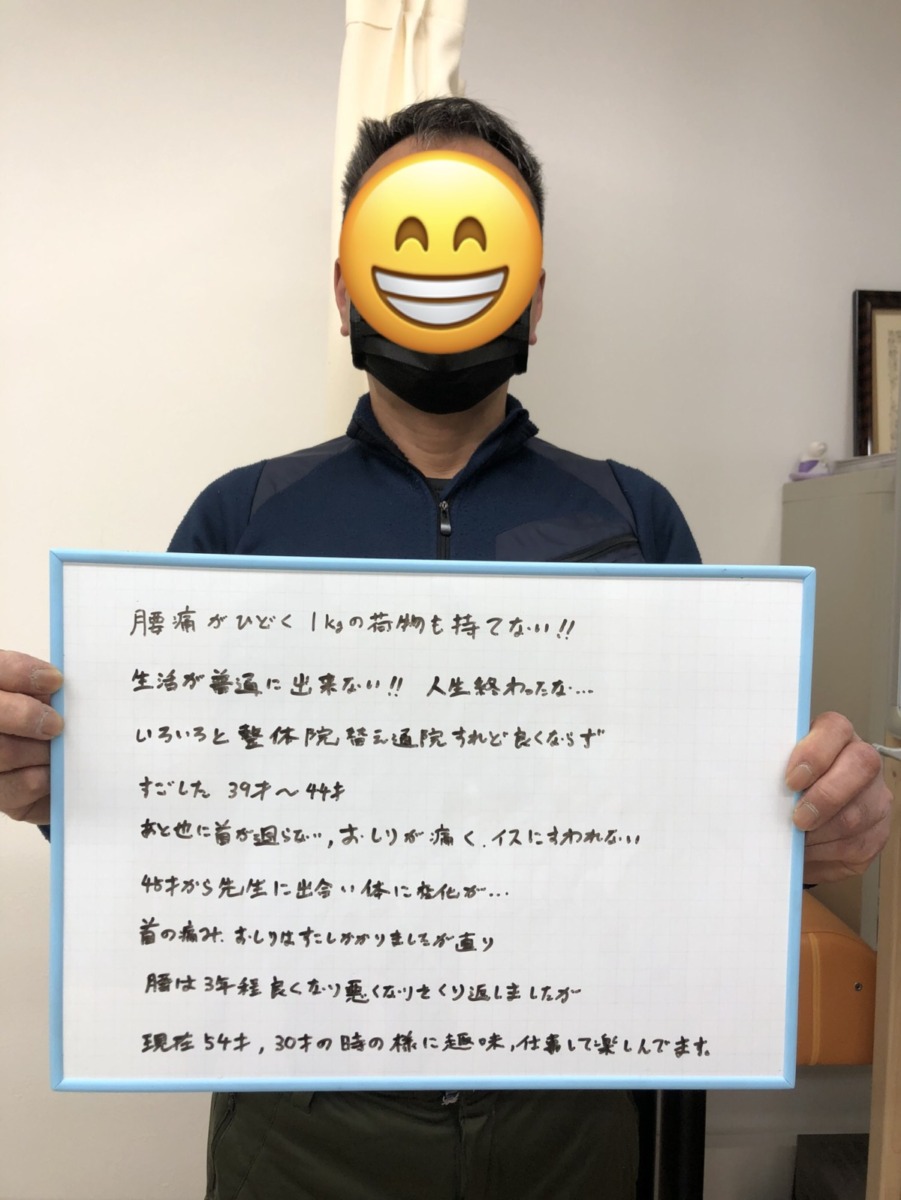 腰痛がひどく 1kgの荷物も持てない!!
生活が普通に出来ない!! 人生終わったな…
いろいろと整体院替え通院すれど良くならず
すごした 39才〜44才
あと也に首が廻らない, おしりが痛く、イスにすわれない
45才から先生に出合い体に変化が…
首の痛み、おしりはすこしかかりましたが直り
腰は3年程良くなり悪くなりをくり返しましたが
現在54才, 30才の時の様に趣味, 仕事して楽しんでます。